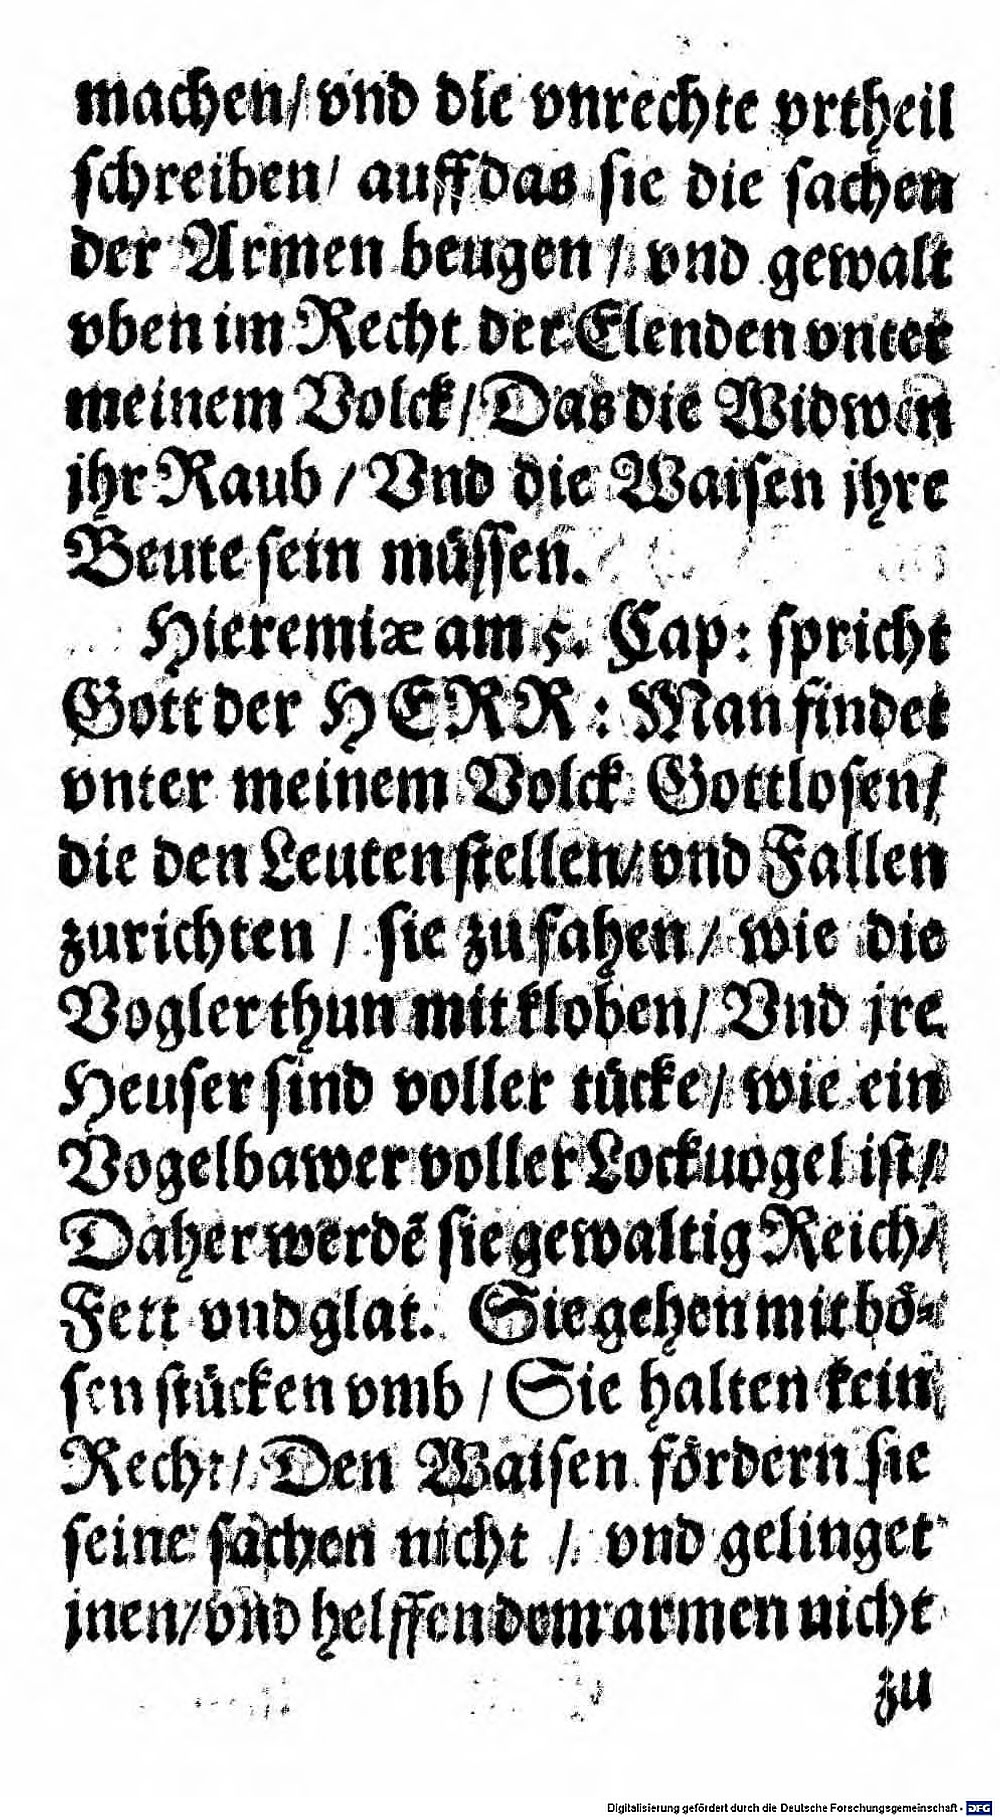 machen/ vnd die vnrechte vrtheil
schreiben/ auff das sie die sachen
der Armen beugen / vnd gewalt
vben im Recht der Elenden vnter
meinem Volck/ Das die Widwen
jhr Raub / Vnd die Waisen jhre
Beute sein müssen.
Hieremiæ am 5. Cap: spricht
Gott der HERR: Man findet
vnter meinem Volck Gottlosen/
die den Leuten stellen/ vnd Fallen
zurichten / sie zu fahen / wie die
Vogler thun mit kloben/ Vnd jre
Heuser sind voller tücke/ wie ein
Vogelbawer voller Lockuogel ist/
Daher werdē sie gewaltig Reich/
Fett vnd glat. Sie gehen mit bö-
sen stücken vmb / Sie halten kein
Recht/ Den Waisen fördern sie
seine sachen nicht / vnd gelinget
jnen/ vnd helffen dem armen nicht
zu
Digitalisierung gefördert durch die Deutsche Forschungsgemeinschaft - DFG